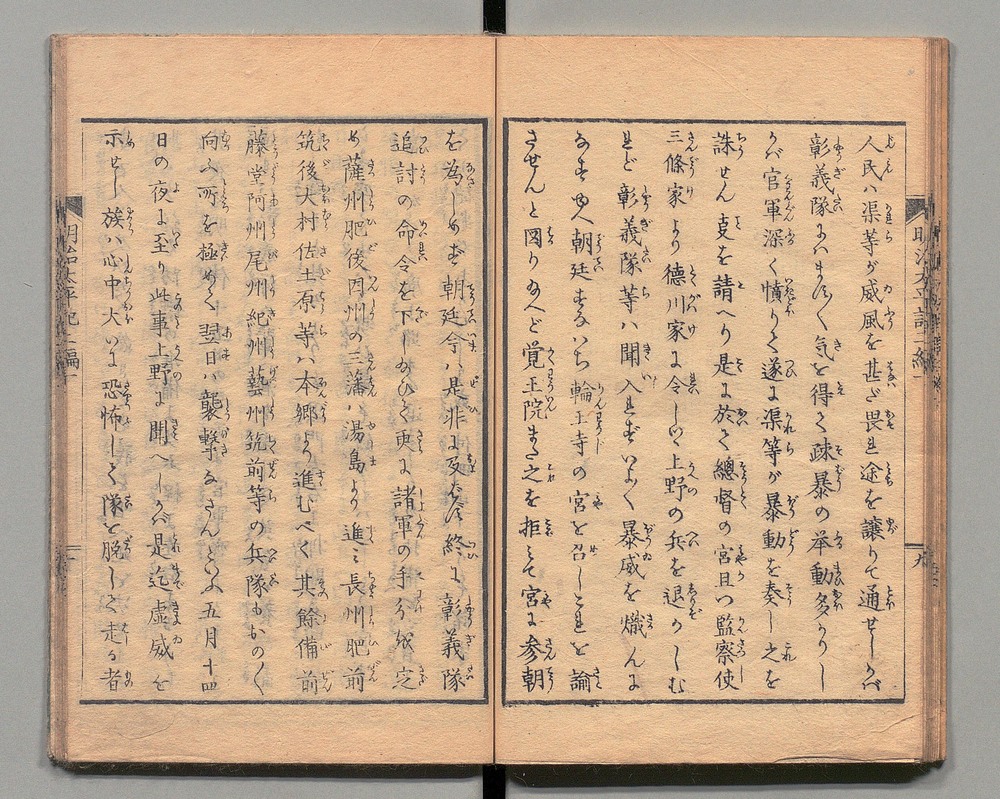 人民ハ渠等が威風を甚ざ畏れ途を譲りて通せしかバ
彰義隊にハます〳〵気を得て疎暴の挙動多かりし
かバ官軍深く憤りて遂に渠等が暴動を奏し之を
誅せん支を請へり是に於て總督の宮且つ監察使
三條家より徳川家に令しハ上野の兵を退かしむ
れど彰義隊等ハ聞入れずいよ〳〵暴威を熾んに
なす故朝廷すなハち輪王寺の宮を召しこれを諭
させんと図り給へど覚王院また之を拒ミて宮に参朝
を為しめず朝廷今ハ是非に及ばず終に彰義隊
追討の命令を下し給ひて更に諸軍の手分を定
め薩州肥後因州の三藩ハ湯島より進ミ長州肥前
筑後大村佐土原等ハ本郷より進むべく其餘備前
藤堂阿州尾州紀州藝州筑前等の兵隊もおの〳〵
向ふ所を極めて翌日ハ襲撃なさんといふ五月十四
日の夜に至り此事上野に聞へしかバ是迄虚威を
示せし族ハ心中大いに恐怖して隊を脱して走る者
明治太平記二編一